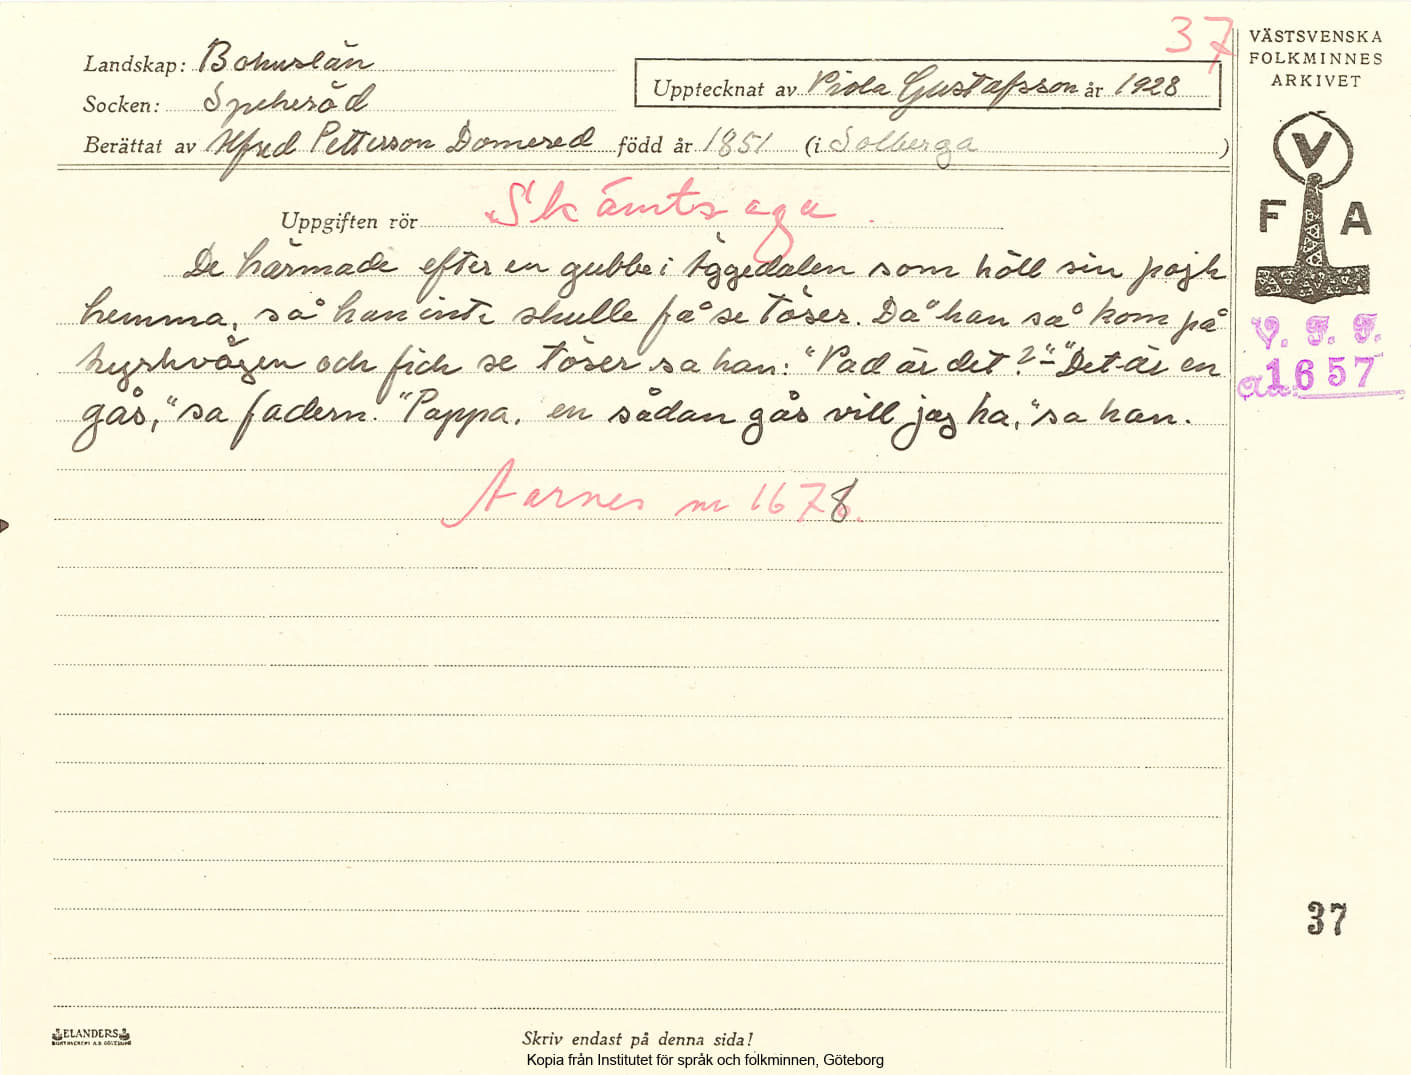 37
VÄSTSVENSKA
FOLKMINNES
ARKIVET
Landskap: Bohuslän
Socken: Spekeröd
Upptecknat av Viola Gustafsson år 1928
Berättat av Alfred Petterson Domered född år 1851 (i Solberga )
V
F A
Uppgiften rör Skämtsaga.
De härmade efter en gubbe i Äggedalen som höll sin pojk
hemma, så han inte skulle få se töser. Då han så kom på
kyrkvägen och fick se töser sa han: "Vad är det?" - "Det är en
gås," sa fadern. "Pappa, en sådan gås vill jag ha," sa han.
V. F. F.
1657
Aarnes nr 1678.
37
ELANDERS
Skriv endast på denna sida!
Kopia från Institutet för språk och folkminnen, Göteborg